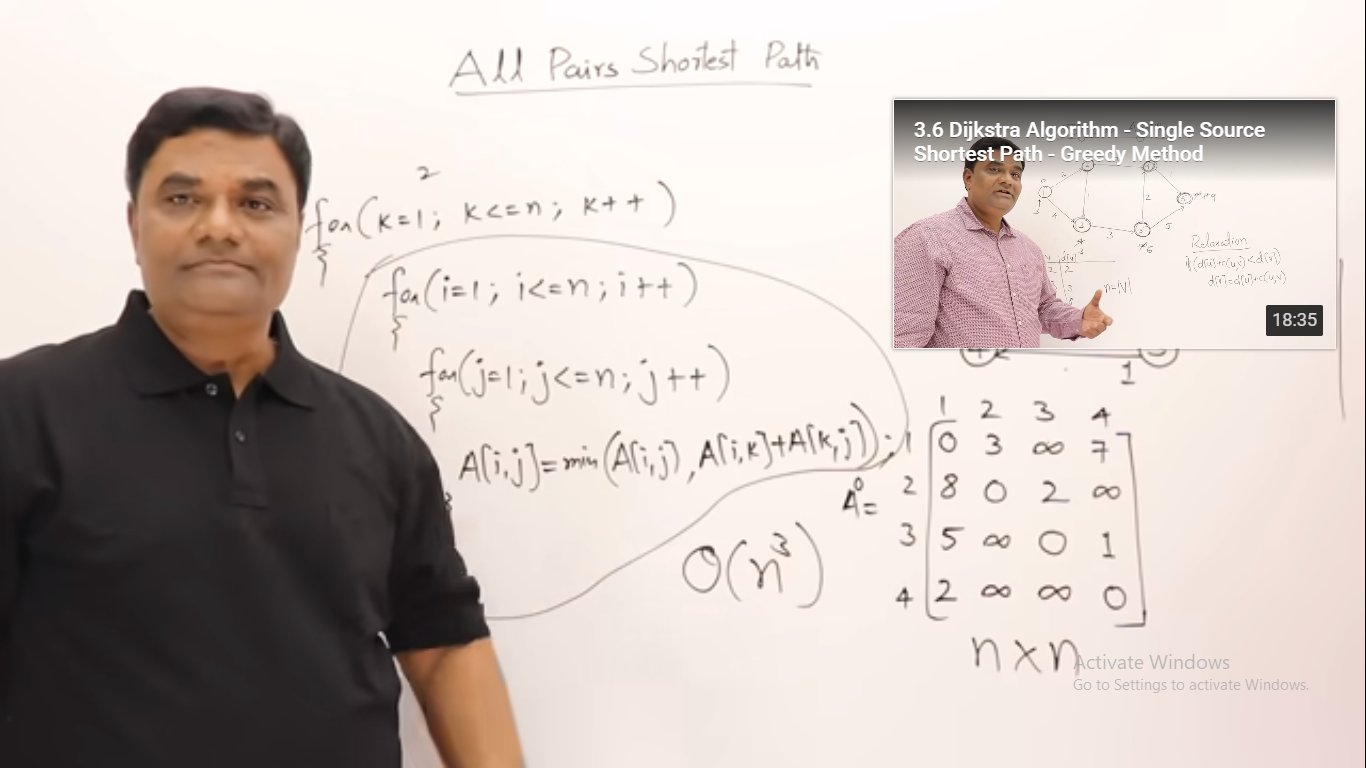 All Pairs Shortest Path
2
for(k=1; k<=n; k++)
{
for(i=1; i<=n; i++)
{
for(j=1; j<=n; j++)
{
A[i,j]=min(A[i,j), A[i,k]+A[k,j]);
O(n³)
3.6 Dijkstra Algorithm - Single Source
Shortest Path - Greedy Method
Relaxation
if(d[u]+c(u,v)<d(v))
d[v]=d[u]+c(u,v)
n=|V|
18:35
1
1 2 3 4
1 0 3 ∞ 7
A⁰= 2 8 0 2 ∞
3 5 ∞ 0 1
4 2 ∞ ∞ 0
n×n
Activate Windows
Go to Settings to activate Windows.